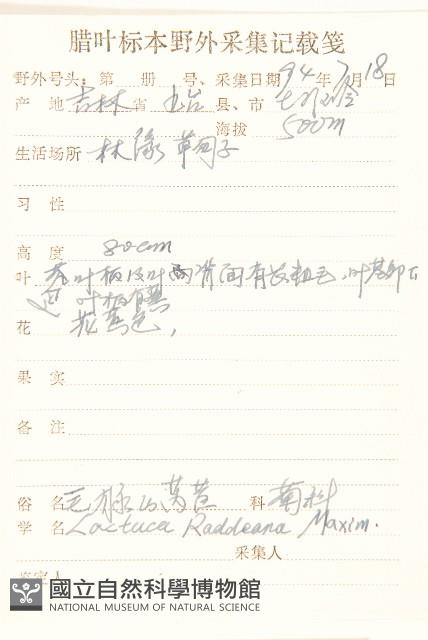 腊叶标本野外采集记载笺
野外号头：第 册 号、采集日期 94 年 7 月 18 日
产 地 吉林 省 县、市
海拔 500m
生活场所 林缘草甸子
习 性
高 度 80cm
叶 茎叶柄及叶两背面有长粗毛，叶基部下
延 叶柄有翼
花 花黄色，
果 实
备 注
俗 名 毛脉山莴苣 科 菊科
学 名 Lactuca Raddeana Maxim.
采集人
鉴定人
國立自然科學博物館
NATIONAL MUSEUM OF NATURAL SCIENCE